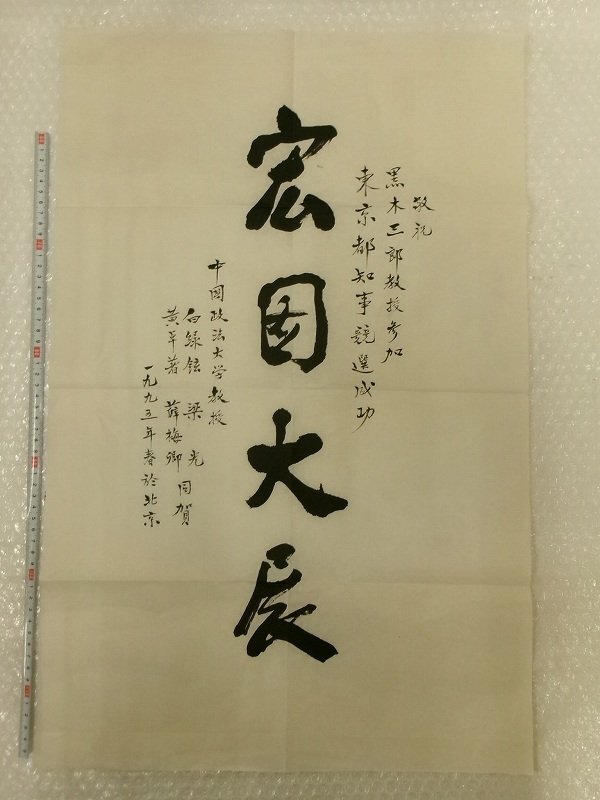 敬祝
黑木三郎教授参加
東京都知事競選成功
宏图大展
中國政法大学教授
白绿铉 梁光
黄卓著 薛梅卿 同賀
一九九五年春於北京